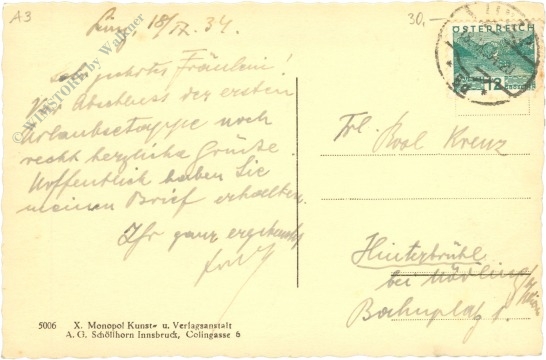 A3
30,-
18/IX. 34.
© WIMSTORE by Walkner
ÖSTERREICH
12
geehrtes Fräulein!
Abschluss der ersten
Urlaubsetappe noch
recht herzliche Grüße.
Hoffentlich haben Sie
meinen Brief erhalten.
Ihr ganz ergebenster
Frl. Kreuz
Hinterbrühl
bei Mödling
Bahnplatz 1.
5006 X. Monopol Kunst- u. Verlagsanstalt
A. G. Schöllhorn Innsbruck, Colingasse 6